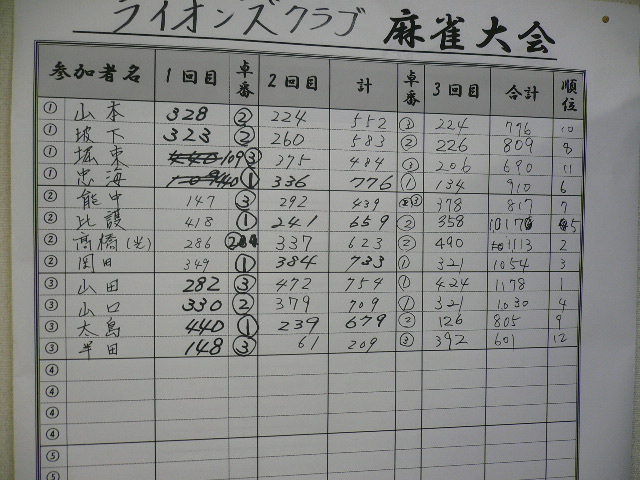 ライオンズクラブ 麻雀大会
参加者名 1回目 卓番 2回目 計 卓番 3回目 合計 順位
① 山本 328 ② 224 552 ③ 224 776 10
① 坂下 323 ② 260 583 ② 226 809 8
① 坂東 109 ③ 275 484 ③ 206 690 11
① 忠海 440 ① 336 776 ① 134 910 6
② 能中 147 ③ 292 439 ③ 378 817 7
② 比護 418 ① 241 659 ② 358 1017 5
② 高橋(光) 286 ② 337 623 ② 490 1113 2
② 岡田 349 ① 384 733 ① 321 1054 3
③ 山田 282 ③ 472 754 ① 424 1178 1
③ 山口 330 ② 379 709 ① 321 1030 4
③ 大島 440 ① 239 679 ② 126 805 9
③ 半田 148 ③ 61 209 ③ 392 601 12
④
④
④
④
⑤
⑤